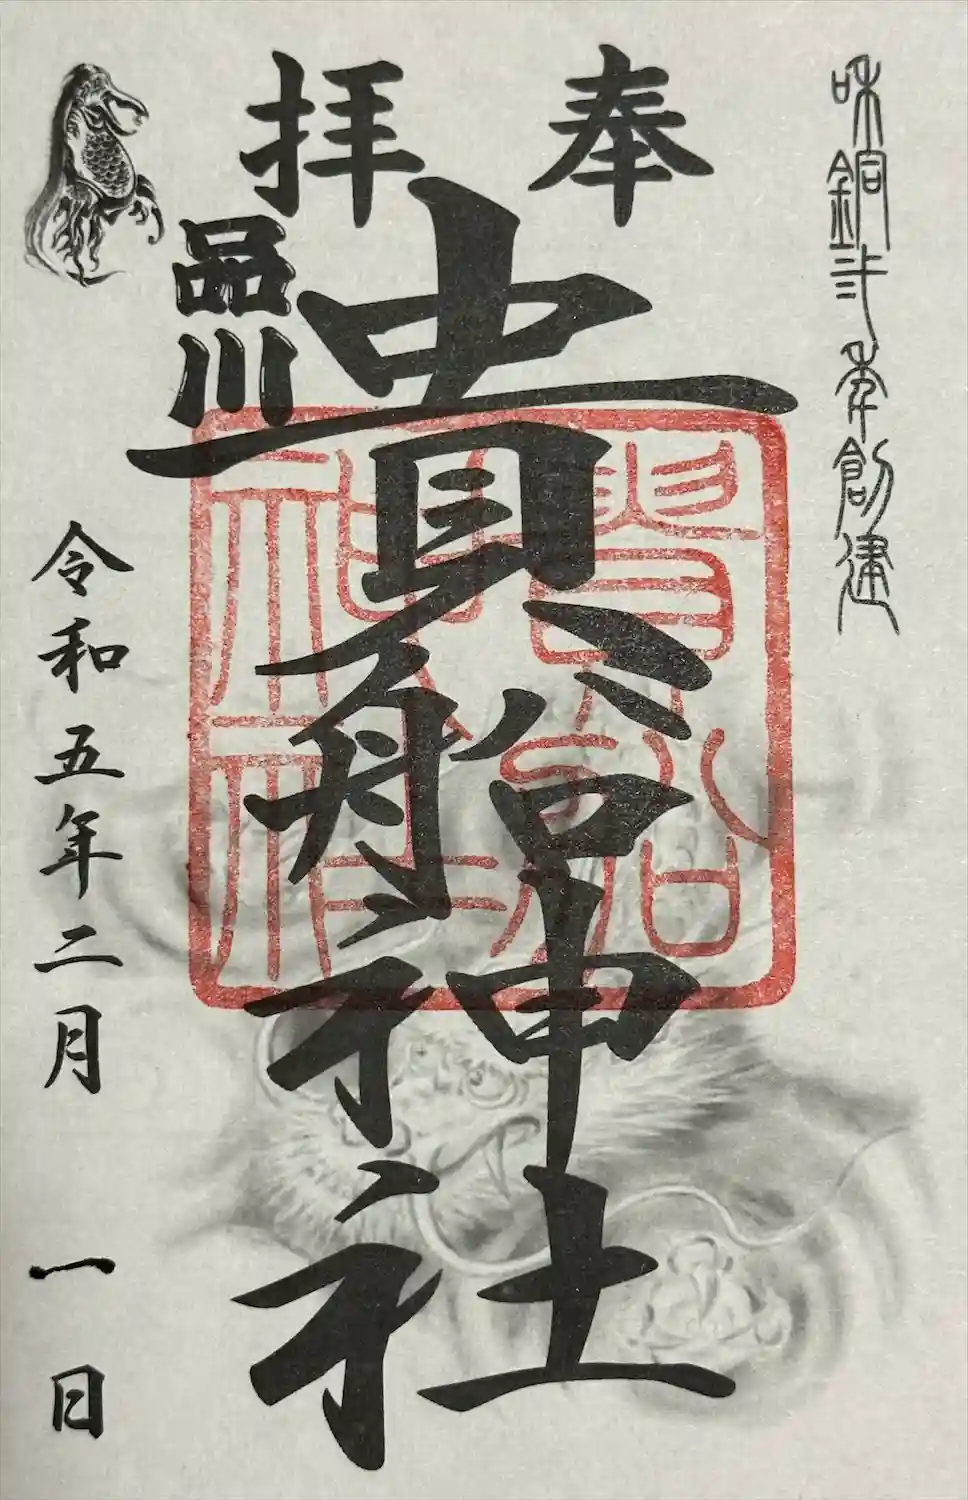 和銅弐年創建
奉拝
貴船神社
品川
貴船神社
令和五年二月一日